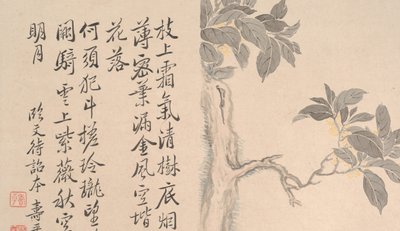 枝上霜氣清樹底烟
薄密葉漏金風空堦
花落
何須犯斗槎玲瓏望
闕騎雲上紫薇秋
明月 臨文待詔本 壽平